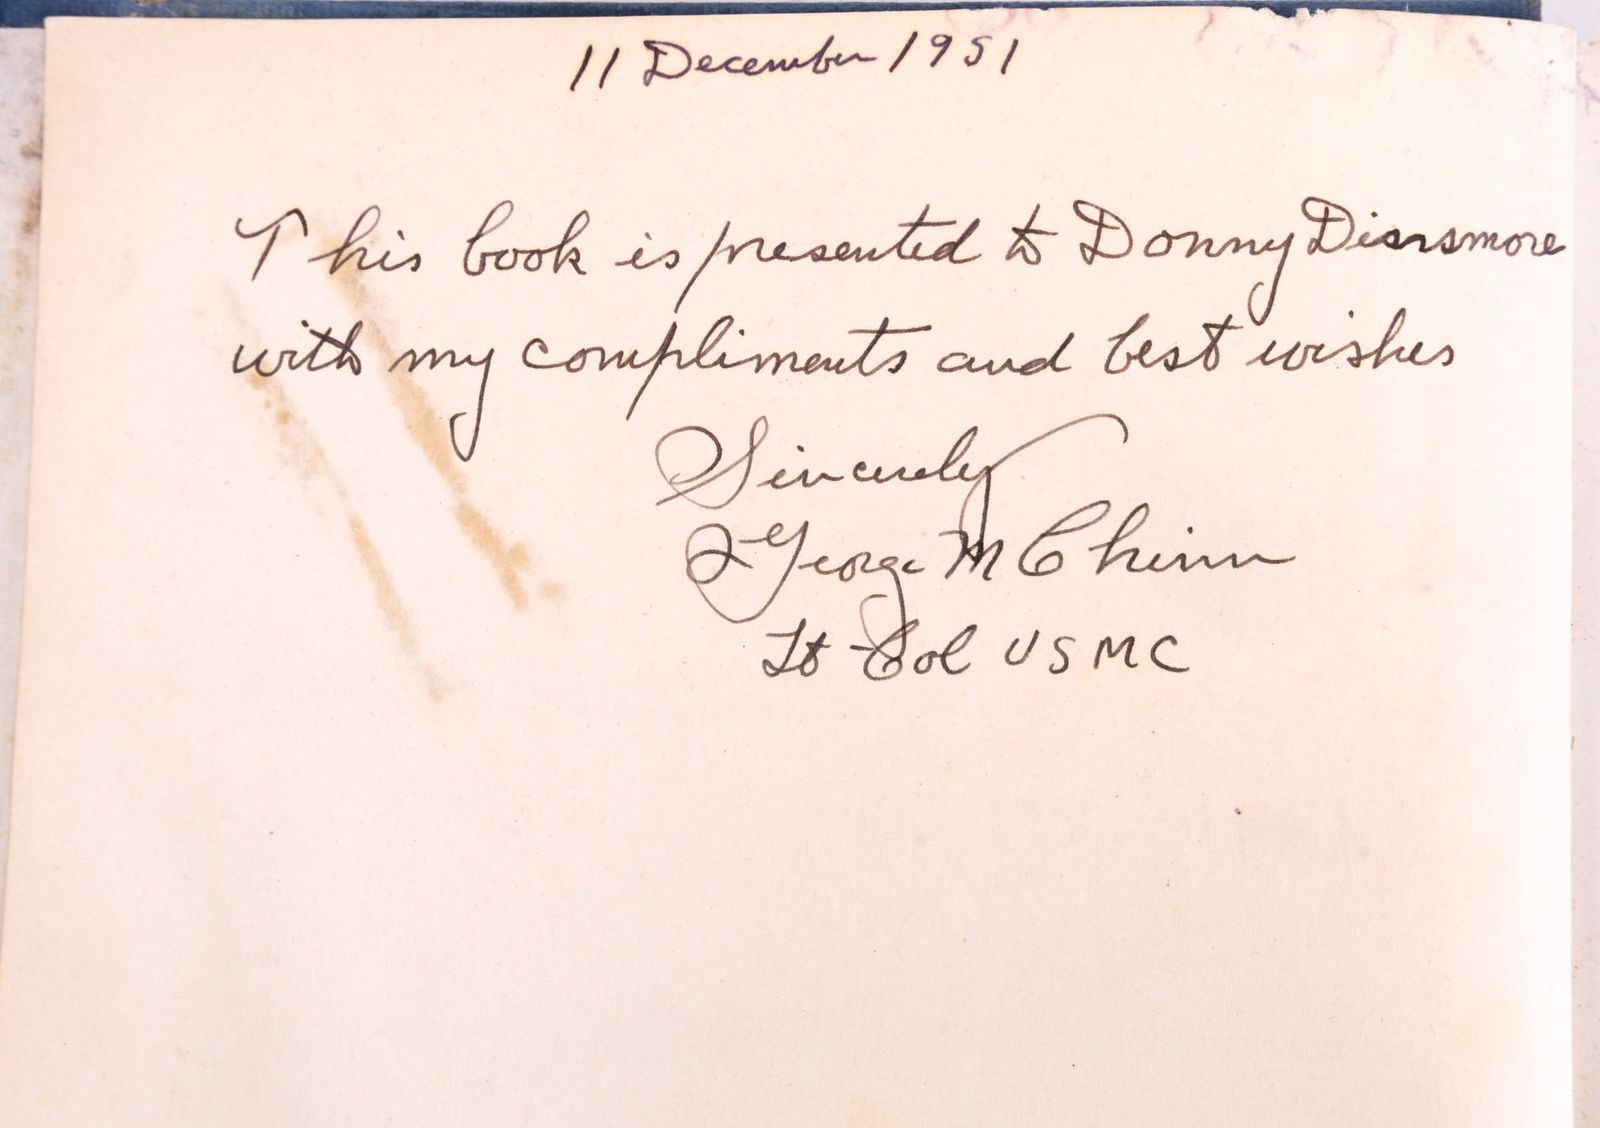 11 December 1951
This book is presented to Donny Dinsmore
with my compliments and best wishes
Sincerely
George M Chinn
Lt Col USMC